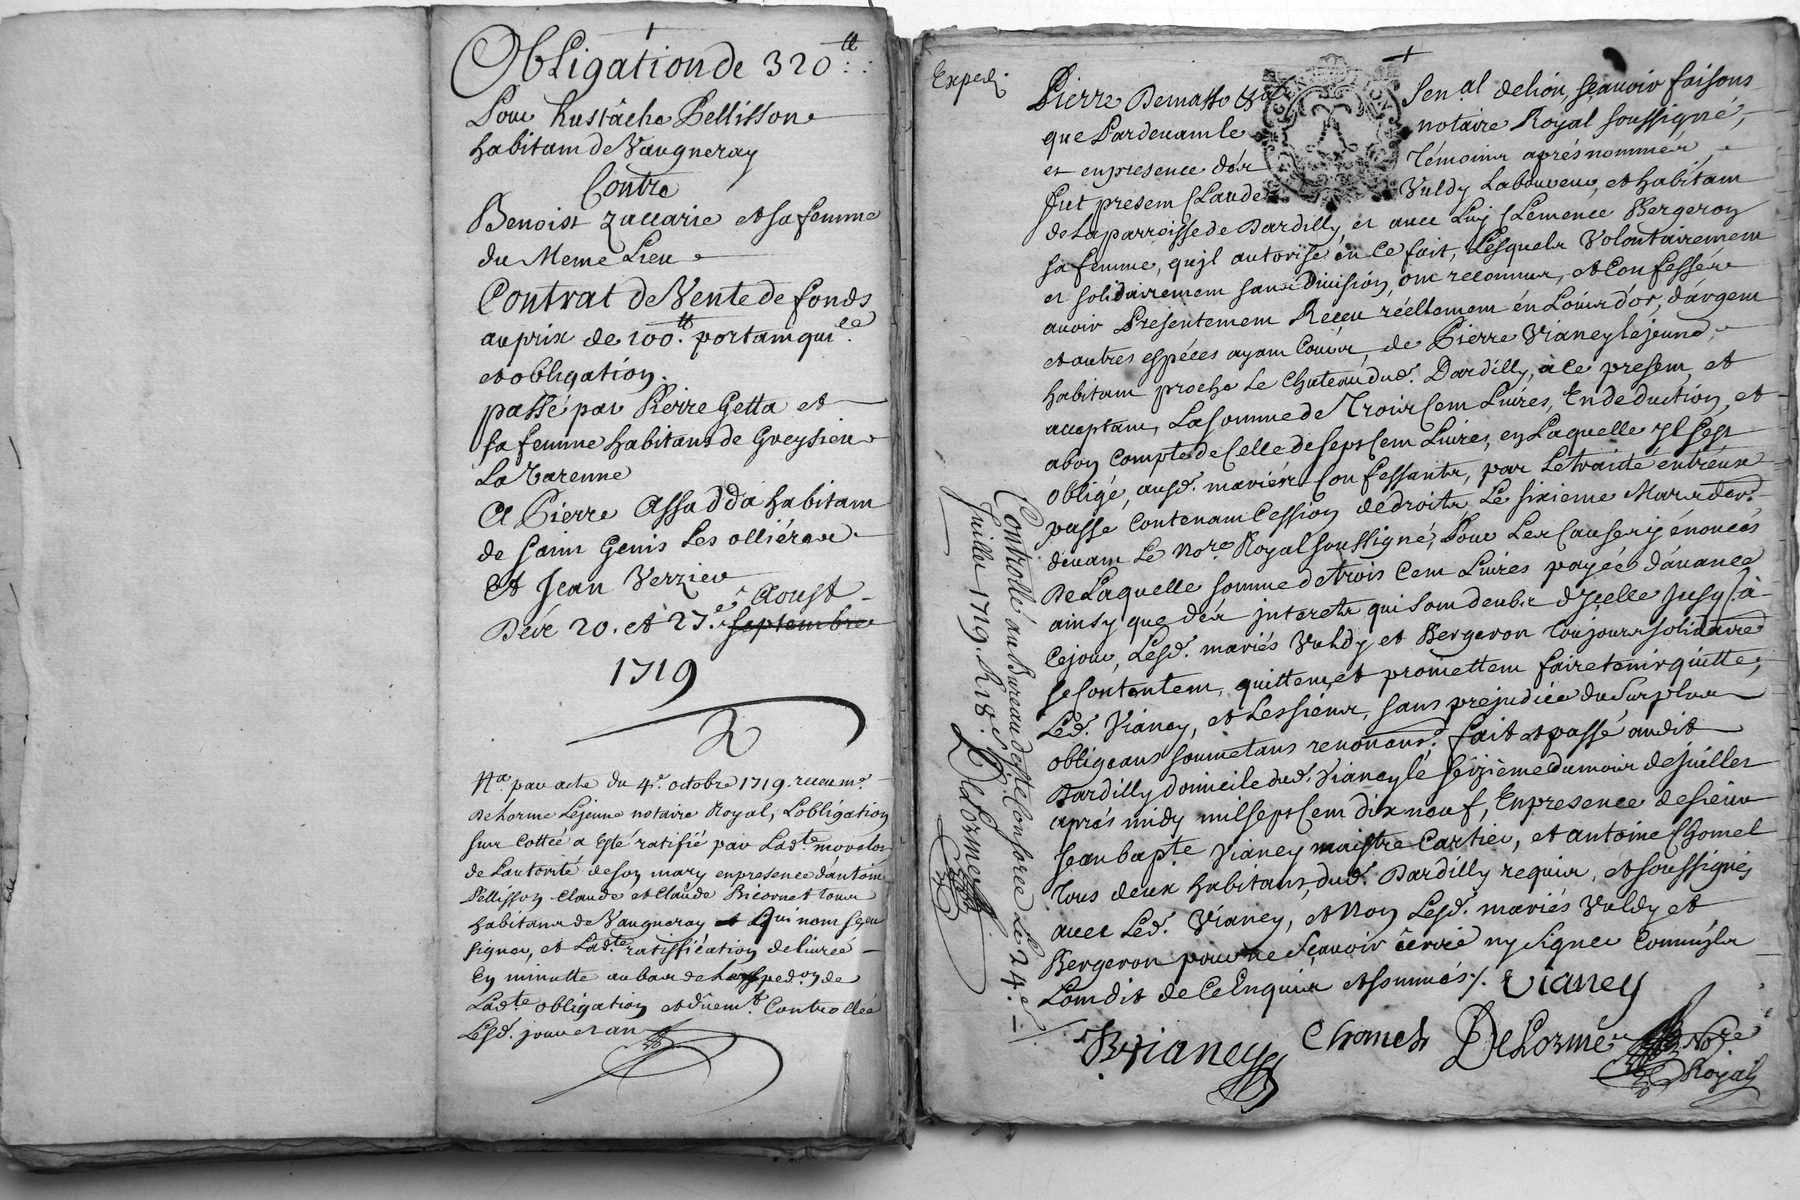 Obligation de 320.tt
Pour Eustache Pellisson
habitam de Vaugneray
Contre
Benoist Zaccarie et sa femme
du Meme Lieu
Contrat de Vente de fonds
au prix de 100.tt portam quit.ce
et obligation.
passé par Pierre Getta et
sa femme habitans de Greysieu
La Varenne
A Pierre Assadda habitam
de Saint Genis Les ollières
Et Jean Verzieu
Aoust
Dévé 20. et 27.e septembre
1719
2
N.ta par acte du 4.e octobre 1719. receu m.e
Delorme Lejeune notaire Royal, Lobligation
sur Cottée a Esté ratifié par Lad.te
de Lautorité de son mary en presence d'antoine
Pellisson Claude et Claude Bicornet tous
habitans de Vaugneray qui nom sceu
signer, et Lad.te ratiffication delivrée
En minutte au bas de de
Lad.te obligation et düem.t Controllée
Lesd. jour et an
Exped.
Pierre Demasso &a Sen.al de lion, scavoir faisons
que Pardevam le notaire Royal soussigné,
et en presence des Témoins aprés nommés,
fut presem Claude Vuldy Laboureur, et habitam
de La parroisse de Dardilly, et avec Luy Clemence Bergeron
sa femme, qu'jl autorise en Ce fait, Lesquels Volontairemem
et solidairemem sans Division, om reconnus, et Confessés
avoir Presentemem Receu réellemem en Loüis d'or, d'argem
et autres espéces ayam Cours, de Pierre Vianey Lejeune,
habitam proche Le Chateau dud. Dardilly, a Ce presem, et
acceptam, La somme de Trois Cem Livres, En deduction, et
a bon Compte de Celle de sept Cem Livres, en Laquelle yl sest
obligé, ausd. mariés Confessants, par Letraitté entr'eux
passé Contenam Cession de droits Le sixieme Mars der.
devam Le No.re Royal soussigné, Pour Les Causes y énoncés
De Laquelle somme de trois Cem Livres payée d'avance
ainsy que des Interets qui som deubs d'Jcelle Jusq'à
Cejour, Lesd. mariés Vuldy et Bergeron Toujours solidaire
se Contentem, quittem, et promettem faire tenir quitte,
Led. Vianey, et Les siens, sans prejudice du Surplus
obligeans soumetans renonans. fait et passé audit
Dardilly domicile dud. Vianey le séizième du mois de juillet
aprés midy mil sept Cem dix neuf, En presence de sieur
Jean bap.te Vianey maistre Cartier, et antoine Chomel
Tous deux habitans dud. Dardilly requis, et soussignés
avec Led. Vianey, et Non Lesd. mariés Vuldy et
Bergeron pour ne sçavoir écrire ny signer Comm'jls
L'om dit de Ce Enquis et sommés /. Vianey
B Vianey Chomel Delorme No.re
Royal
Controllé au Bureau de S.te Consorce Le 24.e
Juillet 1719. R. 18 s. Delorme